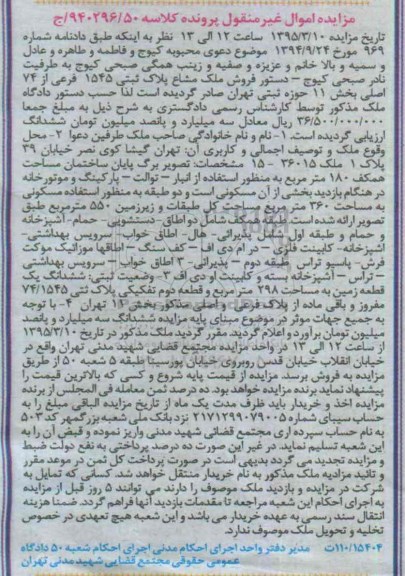 مزایده اموال غیرمنقول پرونده کلاسه ۹۴۰۲۹۶/۵۰/ج
تاریخ مزایده ۱۳۹۵/۳/۱۰ ساعت ۱۲ الی ۱۳ نظر به اینکه طبق دادنامه شماره
۹۶۹ مورخ ۱۳۹۴/۹/۲۴ موضوع دعوی محبوبه کیوج و فاطمه و طاهره و عادل
و سمیه و بالا خانم و عزیزه و صفیه و زینب همگی صبحی کیوج به طرفیت
نادر صبحی کیوج – دستور فروش ملک مشاع پلاک ثبتی ۱۵۴۵ فرعی از ۷۴
اصلی بخش ۱۱ حوزه ثبتی تهران صادر گردیده است لذا حسب دستور دادگاه
ملک مذکور توسط کارشناس رسمی دادگستری به شرح ذیل به مبلغ جمعا
۳۶/۵۰۰/۰۰۰/۰۰۰ ریال معادل سه میلیارد و پانصد میلیون تومان ششدانگ
ارزیابی گردیده است. ۱- نام و نام خانوادگی صاحب ملک طرفین دعوا ۲- محل
وقوع ملک و توصیف اجمالی و کاربری آن تهران گیشا کوی نصر خیابان ۳۹
پلاک ۱ ملک ۳۶۰۱۵ – ۱۵ مشخصات: تصویر برگ پایان ساختمان مساحت
همکف ۱۸۰ متر مربع به منظور استفاده از انبار – توالت – پارکینگ و موتورخانه
در هنگام بازدید بخشی از آن مسکونی است و دو طبقه به منظور استفاده مسکونی
به مساحت ۳۶۰ متر مربع مساحت کل طبقات و زیرزمین ۵۵۰ مترمربع طبق
تصویر ارائه شده است. طبقه همکف شامل دو اطاق – دستشویی – حمام – آشپزخانه
و حمام و طبقه اول شامل پذیرائی – هال – اطاق خواب – سرویس بهداشتی –
آشپزخانه – کابینت فلزی – در ام دی اف – کف سنگ – اطاقها موزائیک موکت
فرش – پاسیو تراس – طبقه دوم – پذیرائی – ۳ اطاق خواب – سرویس بهداشتی
– تراس – آشپزخانه بسته و کابینت و دی اف ۳- وضعیت ثبتی: ششدانگ یک
قطعه زمین به مساحت ۲۹۸ متر مربع و قطعه دوم تفکیکی پلاک ثبتی ۷۴/۱۵۴۵
مفروز و باقی مانده از پلاک فرعی و اصلی مذکور بخش ۱۱ تهران ۴- با توجه
به جمیع جهات موثر در موضوع مبنای پایه مزایده ششدانگ سه میلیارد و پانصد
میلیون تومان برآورد و اعلام گردید. مقرر گردید ملک مذکور در تاریخ ۱۳۹۵/۳/۱۰
از ساعت ۱۲ الی ۱۳ در واحد مزایده مجتمع قضایی شهید مدنی تهران واقع در
خیابان انقلاب خیابان قدس روبروی خیابان پورسینا طبقه ۵ شعبه ۵۰ از طریق
مزایده به فروش برسد. مزایده از قیمت پایه شروع و کسی که بالاترین قیمت را
پیشنهاد نماید برنده مزایده خواهد بود. ده درصد ثمن معامله فی المجلس از برنده
مزایده اخذ و خریدار باید ظرف مدت یک ماه از تاریخ مزایده الباقی مبلغ را به
حساب سیبای شماره ۲۱۷۱۲۹۹۰۷۹۰۰۵ نزد بانک ملی شعبه بزرگمهر کد ۵۰۳
به نام حساب سپرده اری مجتمع قضائی شهید مدنی واریز نموده و قبض آن را به
این شعبه تسلیم نماید. در غیر این صورت ده درصد پرداختی به نفع دولت ضبط
و مزایده تجدید می گردد بدیهی است در صورت پرداخت کل ثمن در موعد مقرر
و تائید مزایده ملک مذکور به نام خریدار منتقل خواهد شد. کسانی که تمایل به
شرکت در مزایده و بازدید ملک موصوف را دارند می توانند ۵ روز قبل از مزایده
به اجرای احکام این شعبه مراجعه تا مقدمات بازدید آنها فراهم گردد. ضمنا هزینه
انتقال سند رسمی به عهده خریدار می باشد و این شعبه هیچ تعهدی در خصوص
تخلیه و تحویل ملک موصوف ندارد.
۱۱۰/۱۵۴۰۴ت مدیر دفتر واحد اجرای احکام مدنی اجرای احکام شعبه ۵۰ دادگاه
عمومی حقوقی مجتمع قضایی شهید مدنی تهران